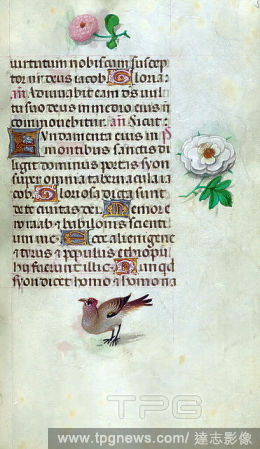 virtutum nobiscum suscep
tor nr deus iacob Gloria
an Adiuvabit eam deus vul
tu suo deus in medio eius n
commovebitur. an Sicut
Fundamenta eius in
montibus sanctis di
ligit dominus portas syon
super omnia tabernacula ia
cob. Gloriosa dicta sunt
de te civitas dei. Memor e
ro raab & babilonis scienti
um me. Ecce alienigene
& tirus & populus ethiopu
hii fuerunt illic. Nunqd
syon dicet homo & homo na
TPG
www.tpgnews.com/達志影像